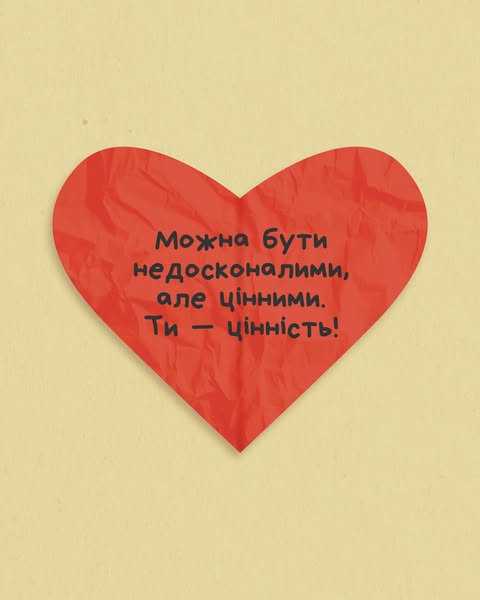 Можна бути
недосконалими,
але цінними.
Ти — цінність!